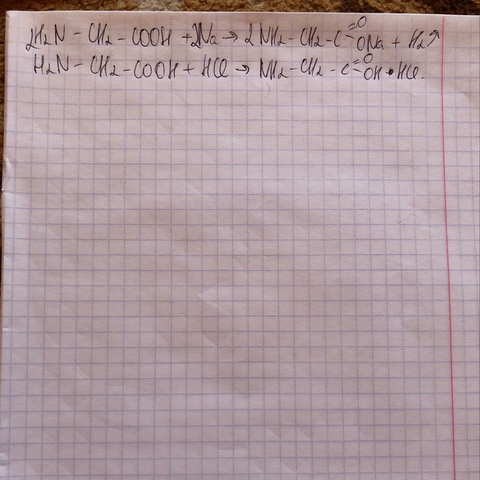 2H₂N – CH₂ – COOH + 2Na → 2NH₂ – CH₂ – C =O ONa + H₂↑
H₂N – CH₂ – COOH + HCl → NH₂ – CH₂ – C =O OH • HCl.